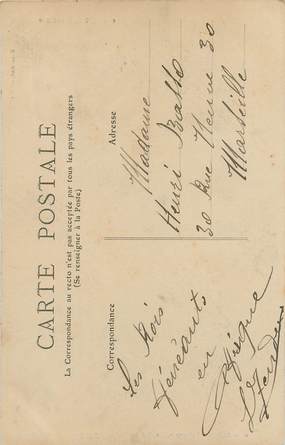 CARTE POSTALE
La Correspondance au recto n'est pas acceptée par tous les pays étrangers
(Se renseigner à la Poste)
Correspondance
Adresse
Les Rois
fainéants
en
Madame
Henri
30 Rue 30
Marseille